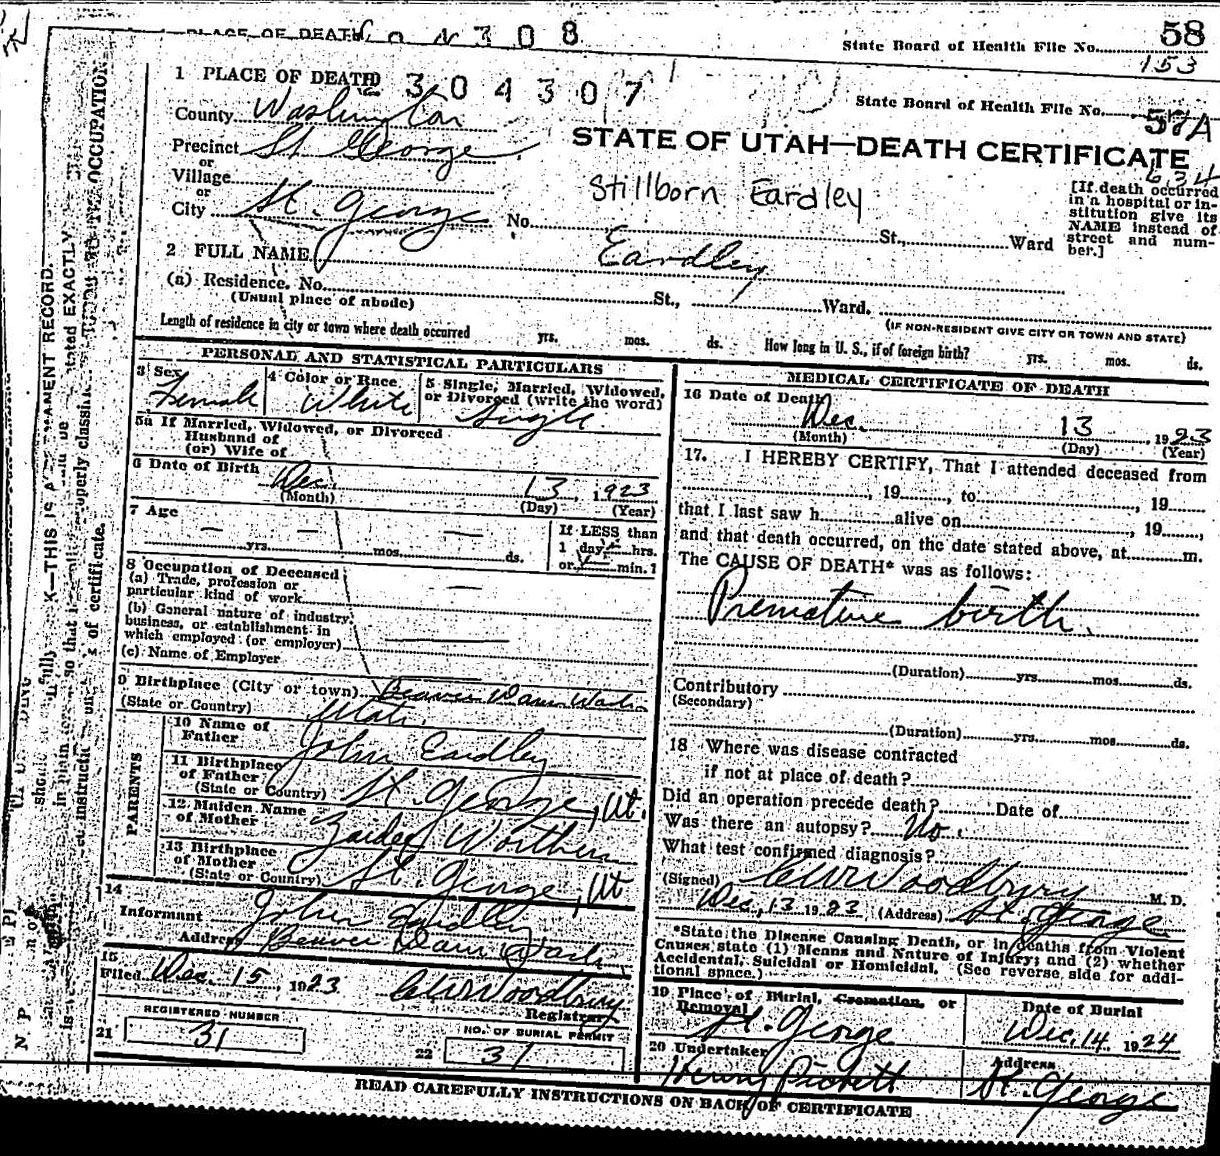 PLACE OF DEATH
308
State Board of Health File No. 58
153
1 PLACE OF DEATH
2 304307
State Board of Health File No. 57A
County Washington
STATE OF UTAH—DEATH CERTIFICATE
634
Precinct St George
or
Village
or
City St. George No. St., Ward
Stillborn Eardley
[If death occurred
in a hospital or in-
stitution give its
NAME instead of
street and num-
ber.]
2 FULL NAME Eardley
(a) Residence. No. St., Ward.
(Usual place of abode)
(IF NON-RESIDENT GIVE CITY OR TOWN AND STATE)
Length of residence in city or town where death occurred yrs. mos. ds. How long in U. S., if of foreign birth? yrs. mos. ds.
PERSONAL AND STATISTICAL PARTICULARS
3 Sex Female
4 Color or Race White
5 Single, Married, Widowed,
or Divorced (write the word)
Single
5a If Married, Widowed, or Divorced
Husband of
(or) Wife of
6 Date of Birth Dec. 13, 1923
(Month) (Day) (Year)
7 Age — — —
yrs. mos. ds.
If LESS than
1 day hrs.
or min.?
8 Occupation of Deceased
(a) Trade, profession or
particular kind of work —
(b) General nature of industry,
business, or establishment in
which employed (or employer) —
(c) Name of Employer
9 Birthplace (City or town) Beaver Dam Wash
(State or Country) Utah.
PARENTS
10 Name of
Father John Eardley
11 Birthplace
of Father
(State or Country) St. George, Ut.
12 Maiden Name
of Mother Worthen
13 Birthplace
of Mother
(State or Country) St. George, Ut
14
Informant John Eardley
Address Beaver Dam Wash.
15
Filed Dec. 15, 1923 Woodbury
Registrar
REGISTERED NUMBER
21 31
NO. OF BURIAL PERMIT
22 31
MEDICAL CERTIFICATE OF DEATH
16 Date of Death Dec. 13, 1923
(Month) (Day) (Year)
17. I HEREBY CERTIFY, That I attended deceased from
, 19, to , 19
that I last saw h alive on , 19,
and that death occurred, on the date stated above, at m.
The CAUSE OF DEATH* was as follows:
Premature birth.
(Duration) yrs. mos. ds.
Contributory
(Secondary)
(Duration) yrs. mos. ds.
18 Where was disease contracted
if not at place of death?
Did an operation precede death? Date of
Was there an autopsy? No.
What test confirmed diagnosis?
(Signed) Woodbury M. D.
Dec. 13 1923 (Address) St. George
*State the Disease Causing Death, or in deaths from Violent
Causes state (1) Means and Nature of Injury; and (2) whether
Accidental, Suicidal or Homicidal. (See reverse side for addi-
tional space.)
19 Place of Burial, Cremation, or
Removal
St. George
Date of Burial
Dec. 14 1924
20 Undertaker
Henry Pickett
Address
St. George
READ CAREFULLY INSTRUCTIONS ON BACK OF CERTIFICATE